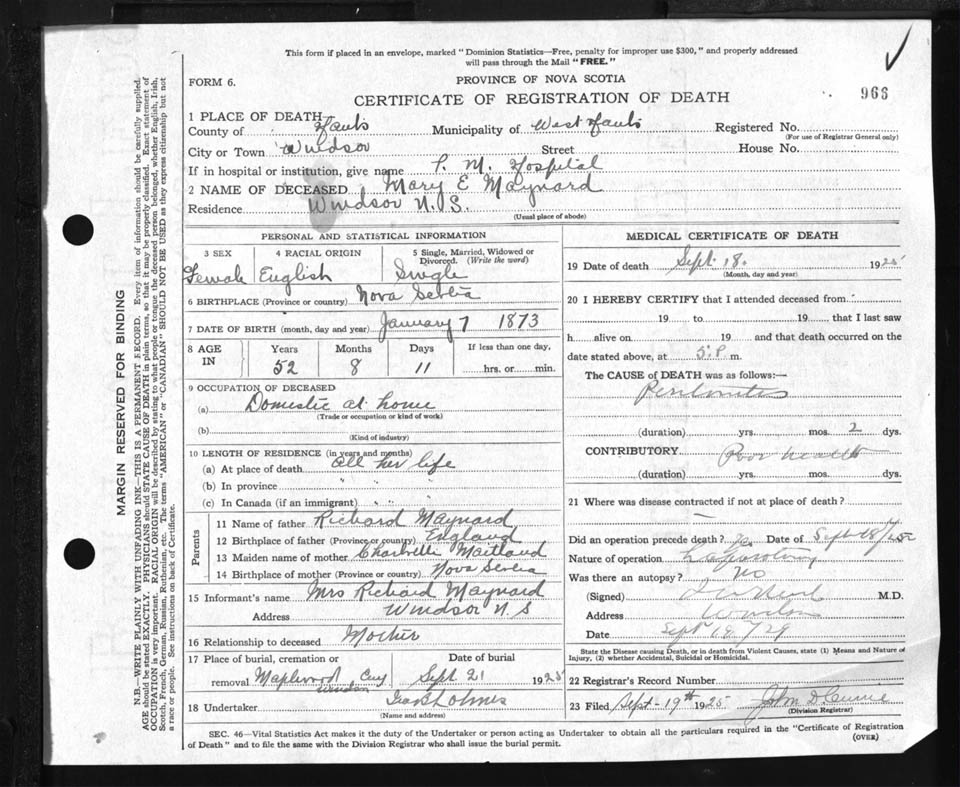 This form if placed in an envelope, marked "Dominion Statistics—Free, penalty for improper use $300," and properly addressed
will pass through the Mail "FREE."
FORM 6.
PROVINCE OF NOVA SCOTIA
CERTIFICATE OF REGISTRATION OF DEATH
966
1 PLACE OF DEATH
County of Hants Municipality of West Hants Registered No.
(For use of Registrar General only)
City or Town Windsor Street House No.
If in hospital or institution, give name P. M. Hospital
2 NAME OF DECEASED Mary E Maynard
Residence Windsor N.S.
(Usual place of abode)
PERSONAL AND STATISTICAL INFORMATION
3 SEX 4 RACIAL ORIGIN 5 Single, Married, Widowed or
Divorced. (Write the word)
Female English Single
6 BIRTHPLACE (Province or country) Nova Scotia
7 DATE OF BIRTH (month, day and year) January 7 1873
8 AGE Years Months Days If less than one day,
IN 52 8 11 hrs. or min.
9 OCCUPATION OF DECEASED
(a) Domestic at home
(Trade or occupation or kind of work)
(b)
(Kind of industry)
10 LENGTH OF RESIDENCE (in years and months)
(a) At place of death all her life
(b) In province " "
(c) In Canada (if an immigrant) " "
Parents
11 Name of father Richard Maynard
12 Birthplace of father (Province or country) England
13 Maiden name of mother Charlotte Maitland
14 Birthplace of mother (Province or country) Nova Scotia
15 Informant's name Mrs Richard Maynard
Address Windsor N S
16 Relationship to deceased Mother
17 Place of burial, cremation or Date of burial
removal Maplewood Cey Sept 21 1925
Windsor
18 Undertaker
(Name and address)
MEDICAL CERTIFICATE OF DEATH
19 Date of death Sept. 18. 1925
(Month, day and year)
20 I HEREBY CERTIFY that I attended deceased from
19 to 19 that I last saw
h alive on 19 and that death occurred on the
date stated above, at 5 P. m.
The CAUSE OF DEATH was as follows:—
Peritonitis
(duration) yrs. mos. 2 dys.
CONTRIBUTORY Poor health
(duration) yrs. mos. dys.
21 Where was disease contracted if not at place of death?
—
Did an operation precede death? Date of Sept 18/
Nature of operation Laparotomy
Was there an autopsy? No
(Signed) M.D.
Address Windsor
Date Sept 18
State the Disease causing Death, or in death from Violent Causes, state (1) Means and Nature of
Injury, (2) whether Accidental, Suicidal or Homicidal.
22 Registrar's Record Number
23 Filed Sept 19th 1925 John D. Currie
(Division Registrar)
SEC. 46—Vital Statistics Act makes it the duty of the Undertaker or person acting as Undertaker to obtain all the particulars required in the "Certificate of Registration
of Death" and to file the same with the Division Registrar who shall issue the burial permit.
(OVER)
MARGIN RESERVED FOR BINDING
N.B.—WRITE PLAINLY WITH UNFADING INK—THIS IS A PERMANENT RECORD. Every item of information should be carefully supplied.
AGE should be stated EXACTLY. PHYSICIANS should STATE CAUSE OF DEATH in plain terms, so that it may be properly classified. Exact statement of
OCCUPATION is very important. RACIAL ORIGIN will be described by stating to what people or tongue the deceased person belonged, whether English, Irish,
Scotch, French, German, Russian, Ruthenian, etc. The terms "AMERICAN" or "CANADIAN" SHOULD NOT BE USED as they express citizenship but not
a race or people. See instructions on back of Certificate.